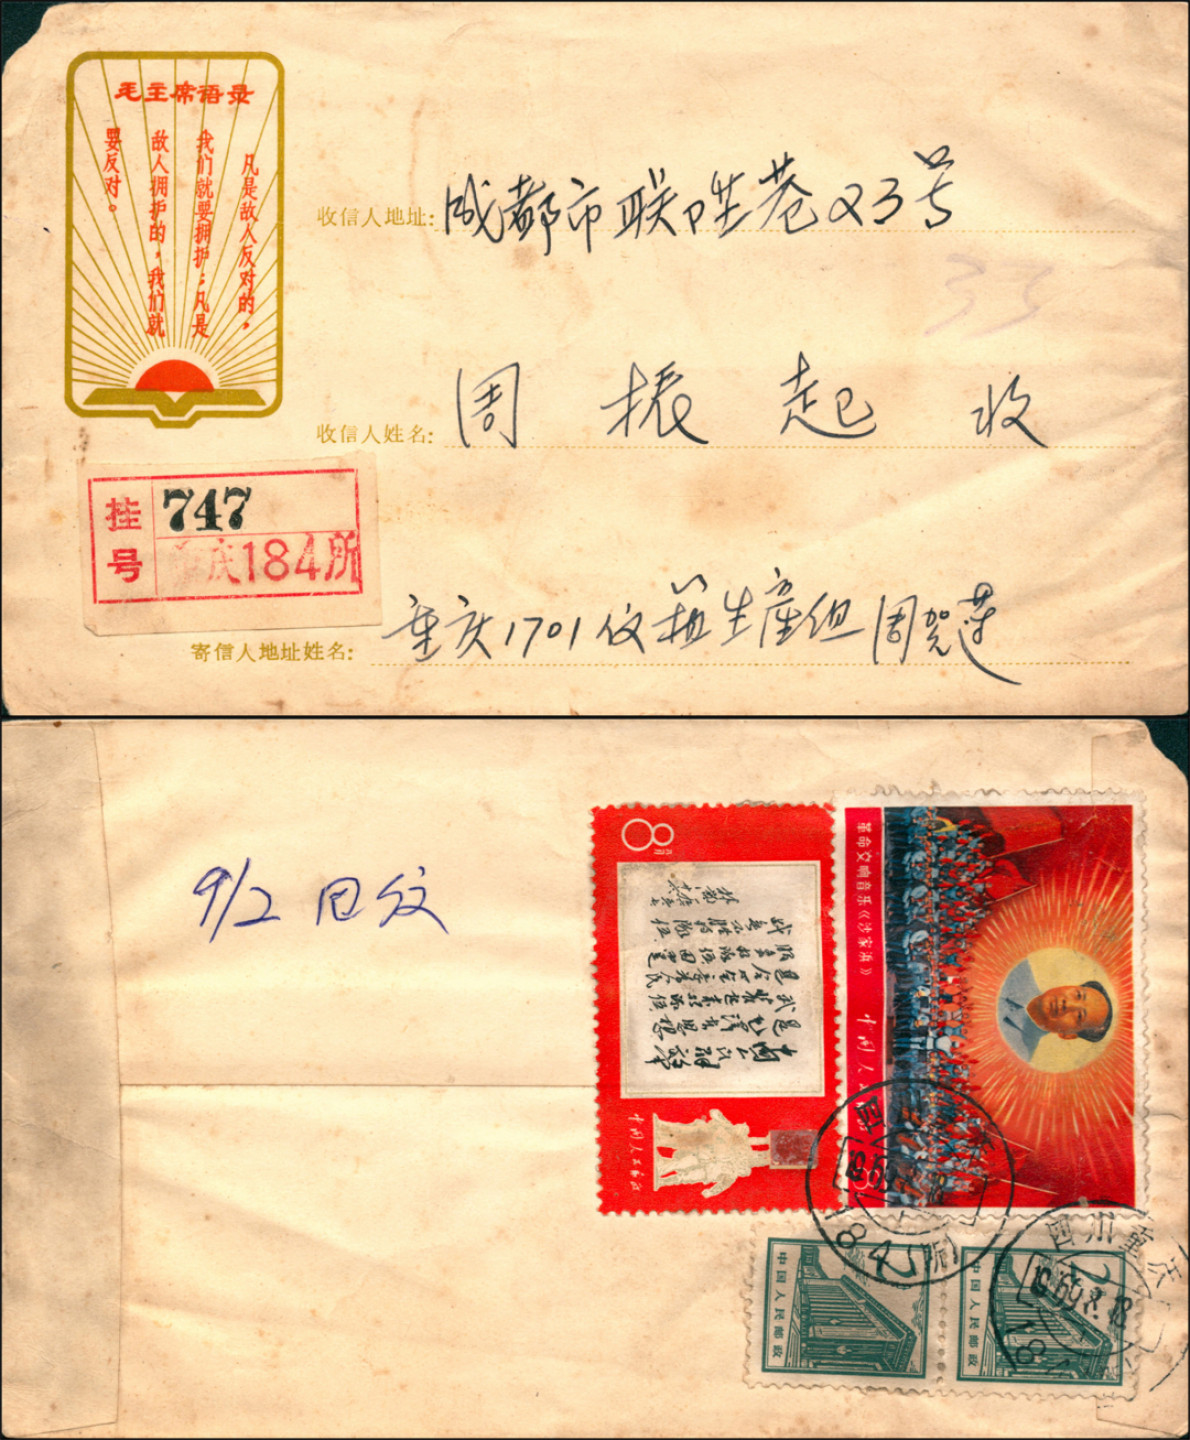 毛主席语录
凡是敌人反对的，
我们就要拥护；凡是
敌人拥护的，我们就
要反对。
收信人地址：成都市联升巷23号
33
收信人姓名：周振起 收
挂号
747
重庆184所
寄信人地址姓名：重庆1701仪表生产组 周贺莲
9/2
8分
中国人民邮政
革命交响音乐《沙家浜》
中国人
四川重庆
1969.8.18
184
所
中国人民邮政
中国人民邮政
四川重庆
1969.8.18
18